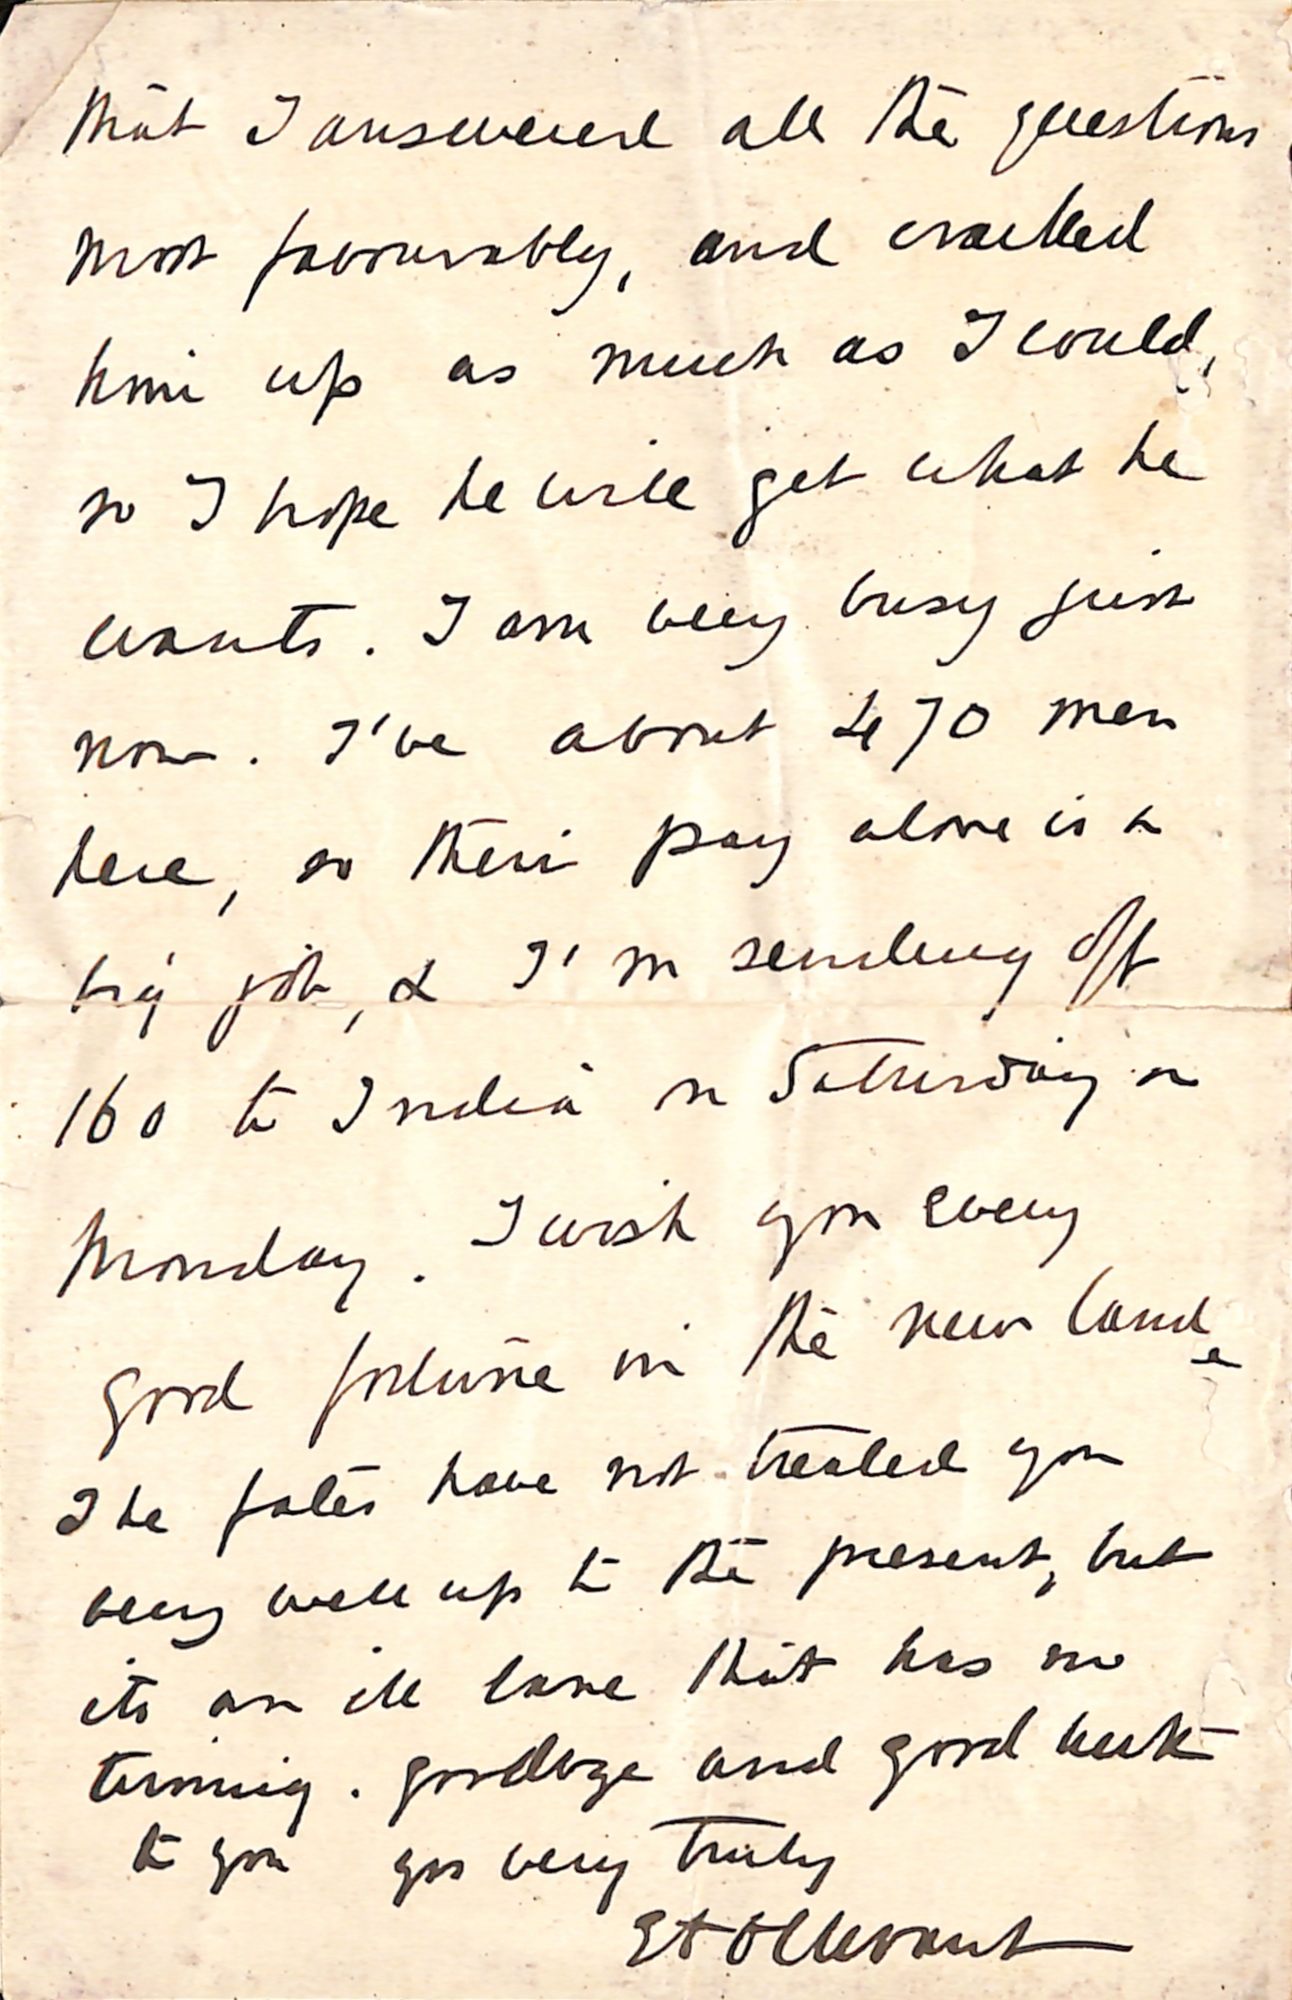 that I answered all the questions
most favourably, and cracked
him up as much as I could,
so I hope he will get what he
wants. I am very busy just
now. I've about 470 men
here, so their pay alone is a
big job, & I'm sending off
160 to India on Saturday or
Monday. I wish you every
good fortune in the new land
The fates have not treated you
very well up to the present, but
its an ill lane that has no
turning. Goodbye and good luck
to you yrs very truly